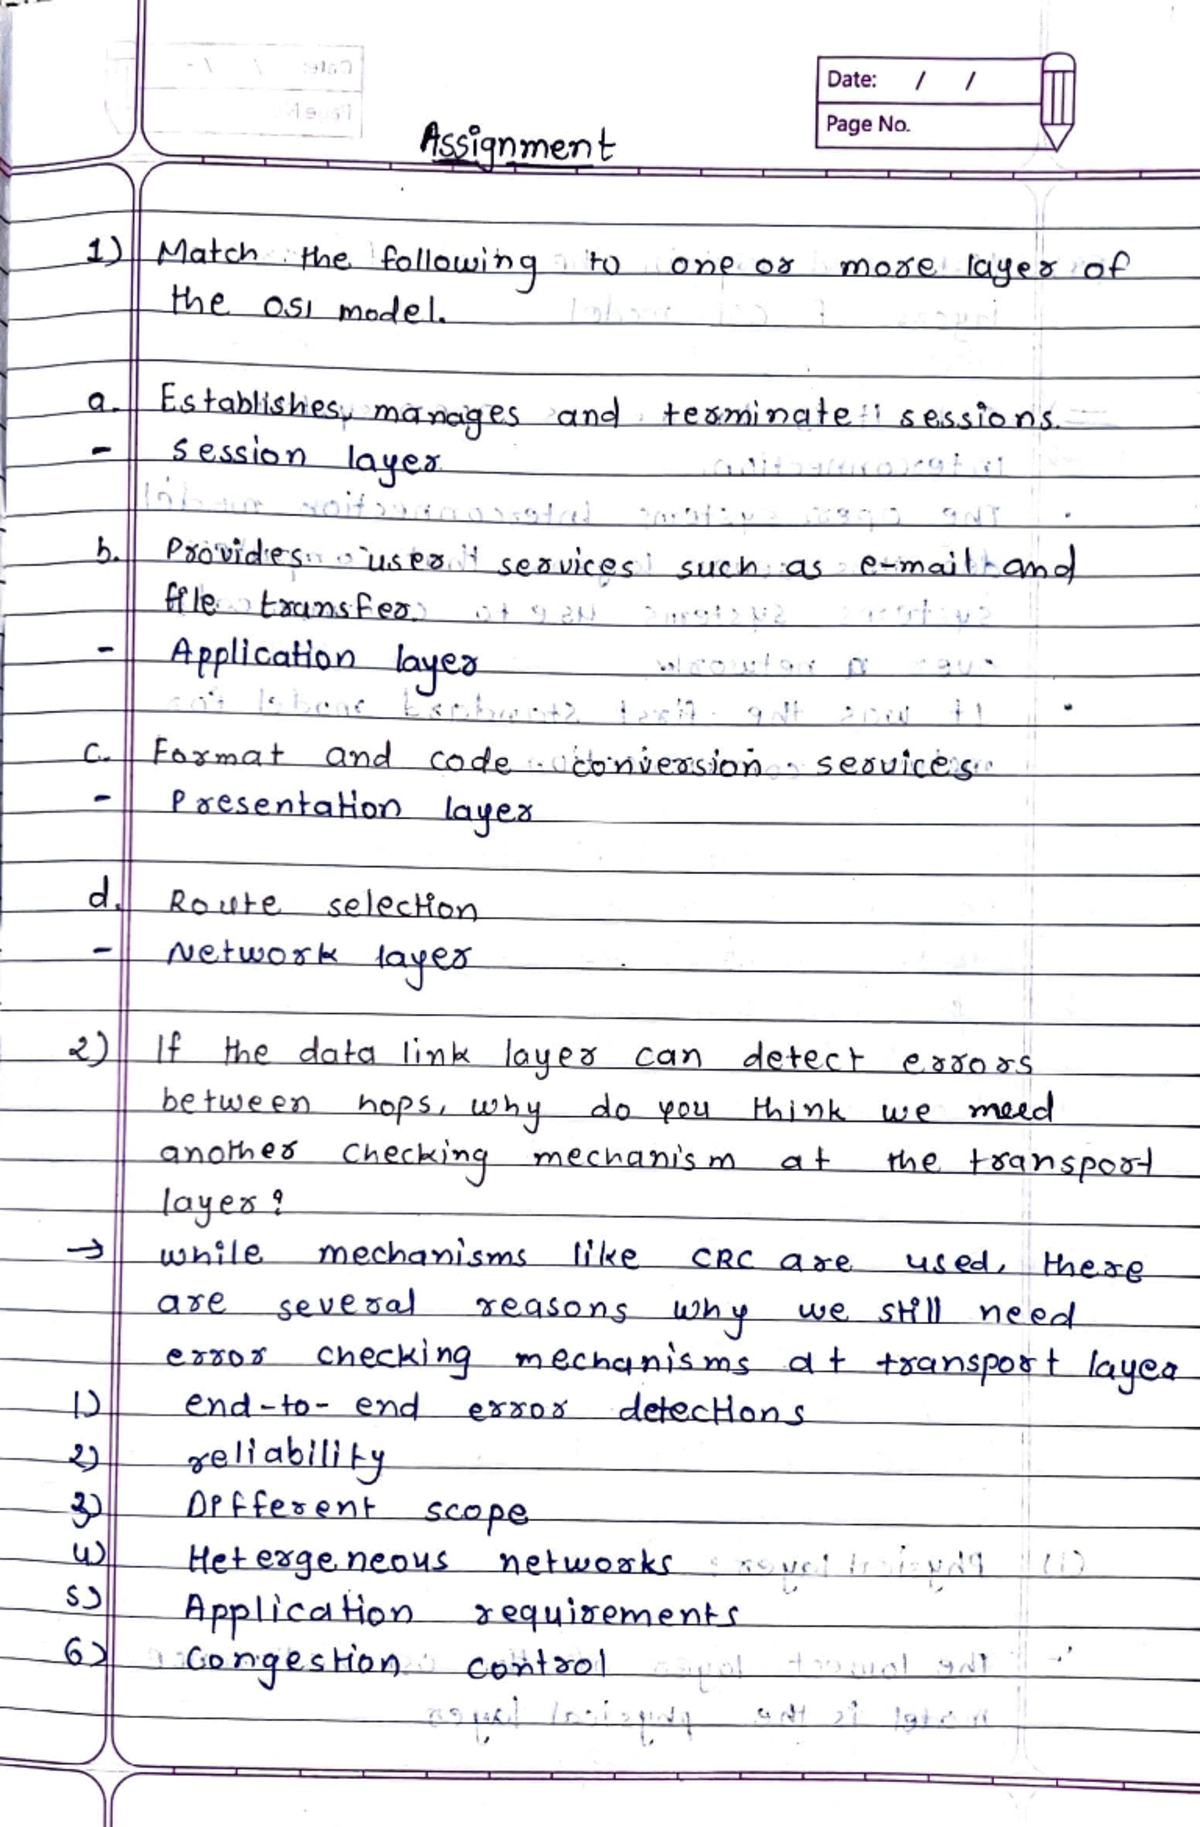 Date: / /
Page No.
Assignment
1) Match the following to one or more layer of
the OSI model.
a. Establishes, manages and terminate sessions.
- Session layer
b. Provides user services such as e-mail and
file transfer.
- Application layer
c. Format and code conversion services
- Presentation layer
d. Route selection
- Network layer
2) If the data link layer can detect errors
between hops, why do you think we meed
another checking mechanism at the transport
layer?
→ while mechanisms like CRC are used, there
are several reasons why we still need
error checking mechanisms at transport layer
1) end-to-end error detections
2) reliability
3) Different scope
4) Hetergeneous networks
5) Application requirements
6) Congestion control